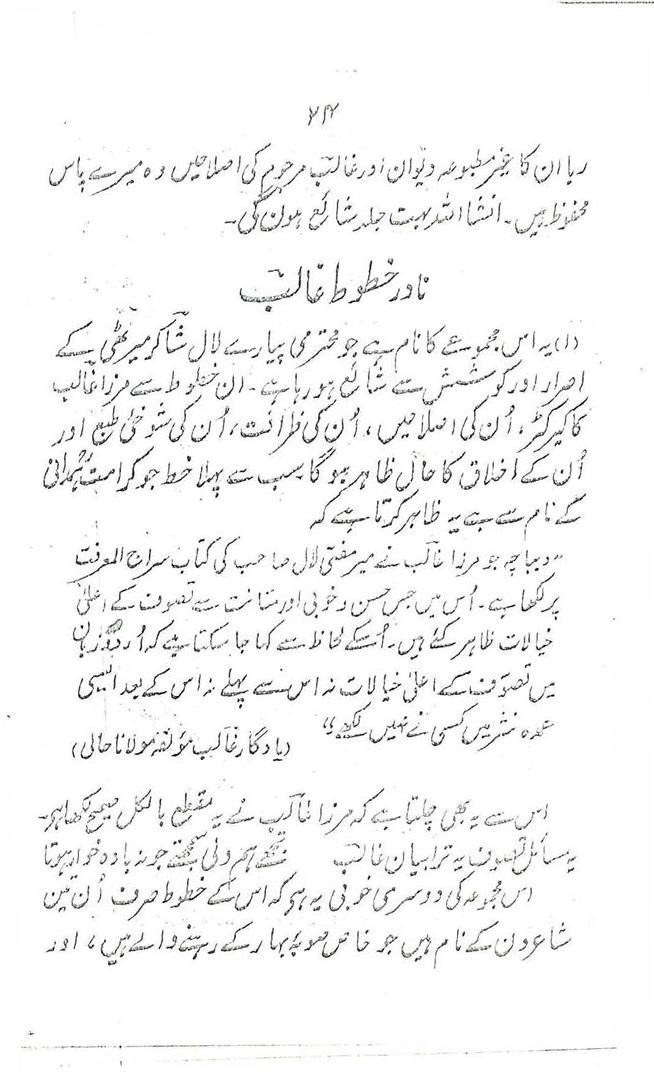 ۳۴
رہا ان کا غیر مطبوعہ دیوان اور غالب مرحوم کی اصلاحیں وہ میرے پاس
محفوظ ہیں۔ انشا اللہ بہت جلد شائع ہوں گی۔
نادر خطوط غالب
(۱) یہ اس مجموعے کا نام ہے جو محترمی پیارے لال شاکر میرٹھی کے
اصرار اور کوشش سے شائع ہو رہا ہے۔ ان خطوط سے مرزا غالب
کا کیرکٹر، اُن کی اصلاحیں، اُن کی ظرافت، اُن کی شوخیٔ طبع اور
اُن کے اخلاق کا حال ظاہر ہوگا سب سے پہلا خط جو کرامت ہمدانی
کے نام سے ہے یہ ظاہر کرتا ہے کہ
"دیباچہ جو مرزا غالب نے میر مفتی لال صاحب کی کتاب سراج المعرفت
پر لکھا ہے۔ اُس میں جس حسن و خوبی اور متانت سے تصوف کے اعلیٰ
خیالات ظاہر کئے ہیں۔ اُسکے لحاظ سے کہا جا سکتا ہے کہ اُردو زبان
میں تصوّف کے اعلیٰ خیالات نہ اس سے پہلے نہ اس کے بعد ایسی
عمدہ نثر میں کسی نے نہیں لکھے"
(یادگار غالب مؤلفہ مولانا حالی)
اس سے یہ بھی چلتا ہے کہ مرزا غالب نے یہ مقطع بالکل صحیح لکھا ہے۔
یہ مسائل تصوف یہ ترا بیان غالب تجھے ہم ولی سمجھتے جو نہ بادہ خوار ہوتا
اس مجموعہ کی دوسری خوبی یہ ہے کہ اس کے خطوط صرف اُن تین
شاعروں کے نام ہیں جو خاص صوبۂ بہار کے رہنے والے ہیں، اور